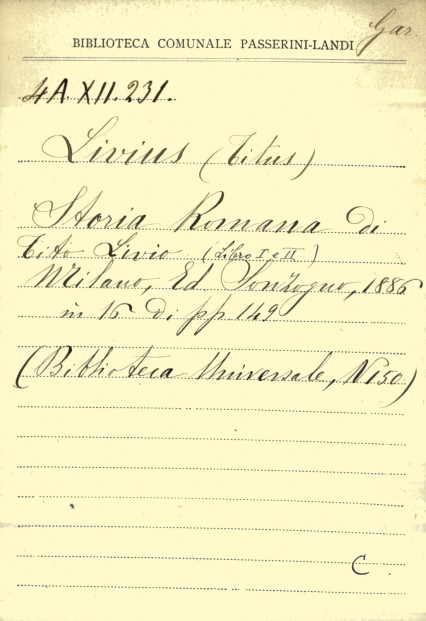 Gar
BIBLIOTECA COMUNALE PASSERINI-LANDI
4A.XII.231.
Livius (Titus)
Storia Romana di
Tito Livio (Libro I e II)
Milano, Ed Sonzogno, 1886
in 16 di pp 149
(Biblioteca Universale, N 150)
C.